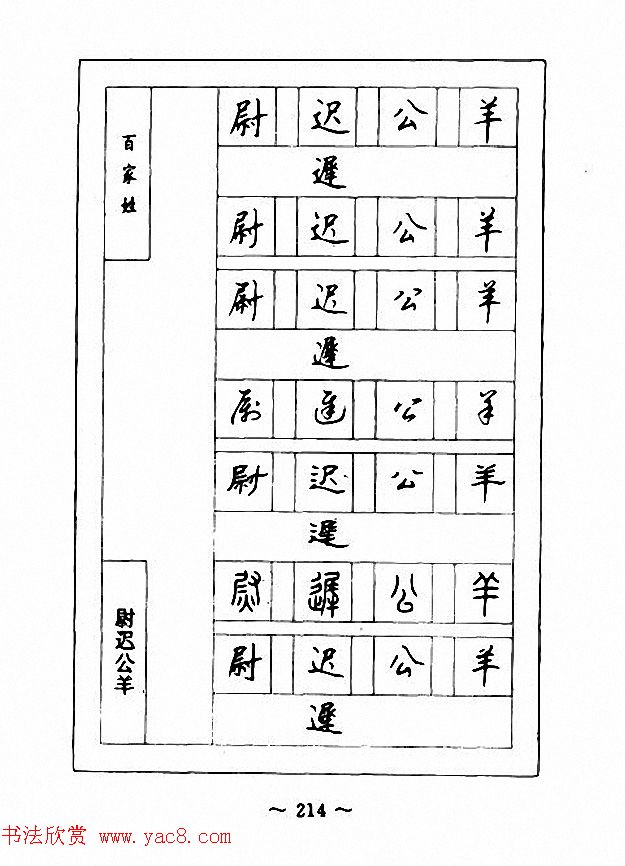 百家姓
尉 迟 公 羊
遲
尉 迟 公 羊
尉 迟 公 羊
遲
尉 迟 公 羊
尉 迟 公 羊
遲
尉 遲 公 羊
尉 迟 公 羊
遲
尉迟公羊
~ 214 ~
书法欣赏 www.yac8.com